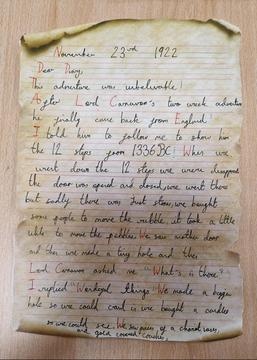 November 23rd 1922
Dear Diary,
This adventure was unbelivable!
After Lord Carnavon's two week adventure
he finally came back from England.
I told him to follow me to show him
the 12 steps from 1336BC! When we
went down the 12 steps we were
the door was opend and closed, we went there
but sadly there was Just stone, we bought
some people to move the rubble, it took a little
while to move the pebbles. We saw another door
and then we made a tiny hole and then
Lord Carnavon asked me "What's is there?"
I replied "Wonderful things" We made a bigger
hole so we could crawl in we bought a candles
so we could see. We saw pieces of a chariot,
and gold covered couches,